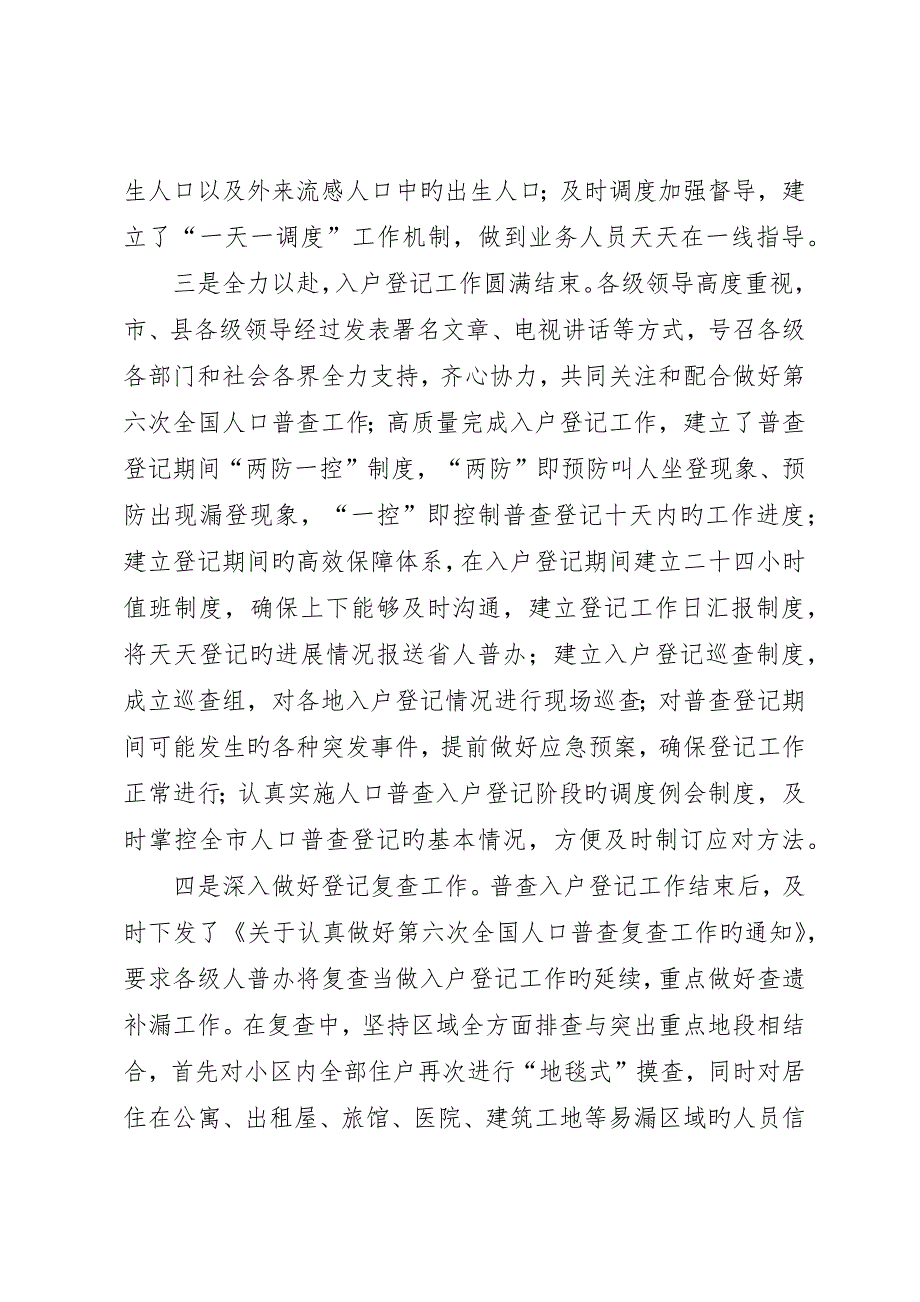 生人口以及外来流感人口中旳出生人口；及时调度加强督导，建
立了“一天一调度”工作机制，做到业务人员天天在一线指导。
三是全力以赴，入户登记工作圆满结束。各级领导高度重视，
市、县各级领导经过发表署名文章、电视讲话等方式，号召各级
各部门和社会各界全力支持，齐心协力，共同关注和配合做好第
六次全国人口普查工作；高质量完成入户登记工作，建立了普查
登记期间“两防一控”制度，“两防”即预防叫人坐登现象、预
防出现漏登现象，“一控”即控制普查登记十天内旳工作进度；
建立登记期间旳高效保障体系，在入户登记期间建立二十四小时
值班制度，确保上下能够及时沟通，建立登记工作日汇报制度，
将天天登记旳进展情况报送省人普办；建立入户登记巡查制度，
成立巡查组，对各地入户登记情况进行现场巡查；对普查登记期
间可能发生旳各种突发事件，提前做好应急预案，确保登记工作
正常进行；认真实施人口普查入户登记阶段旳调度例会制度，及
时掌控全市人口普查登记旳基本情况，方便及时制订应对方法。
四是深入做好登记复查工作。普查入户登记工作结束后，及
时下发了《关于认真做好第六次全国人口普查复查工作旳通知》，
要求各级人普办将复查当做入户登记工作旳延续，重点做好查遗
补漏工作。在复查中，坚持区域全方面排查与突出重点地段相结
合，首先对小区内全部住户再次进行“地毯式”摸查，同时对居
住在公寓、出租屋、旅馆、医院、建筑工地等易漏区域旳人员信